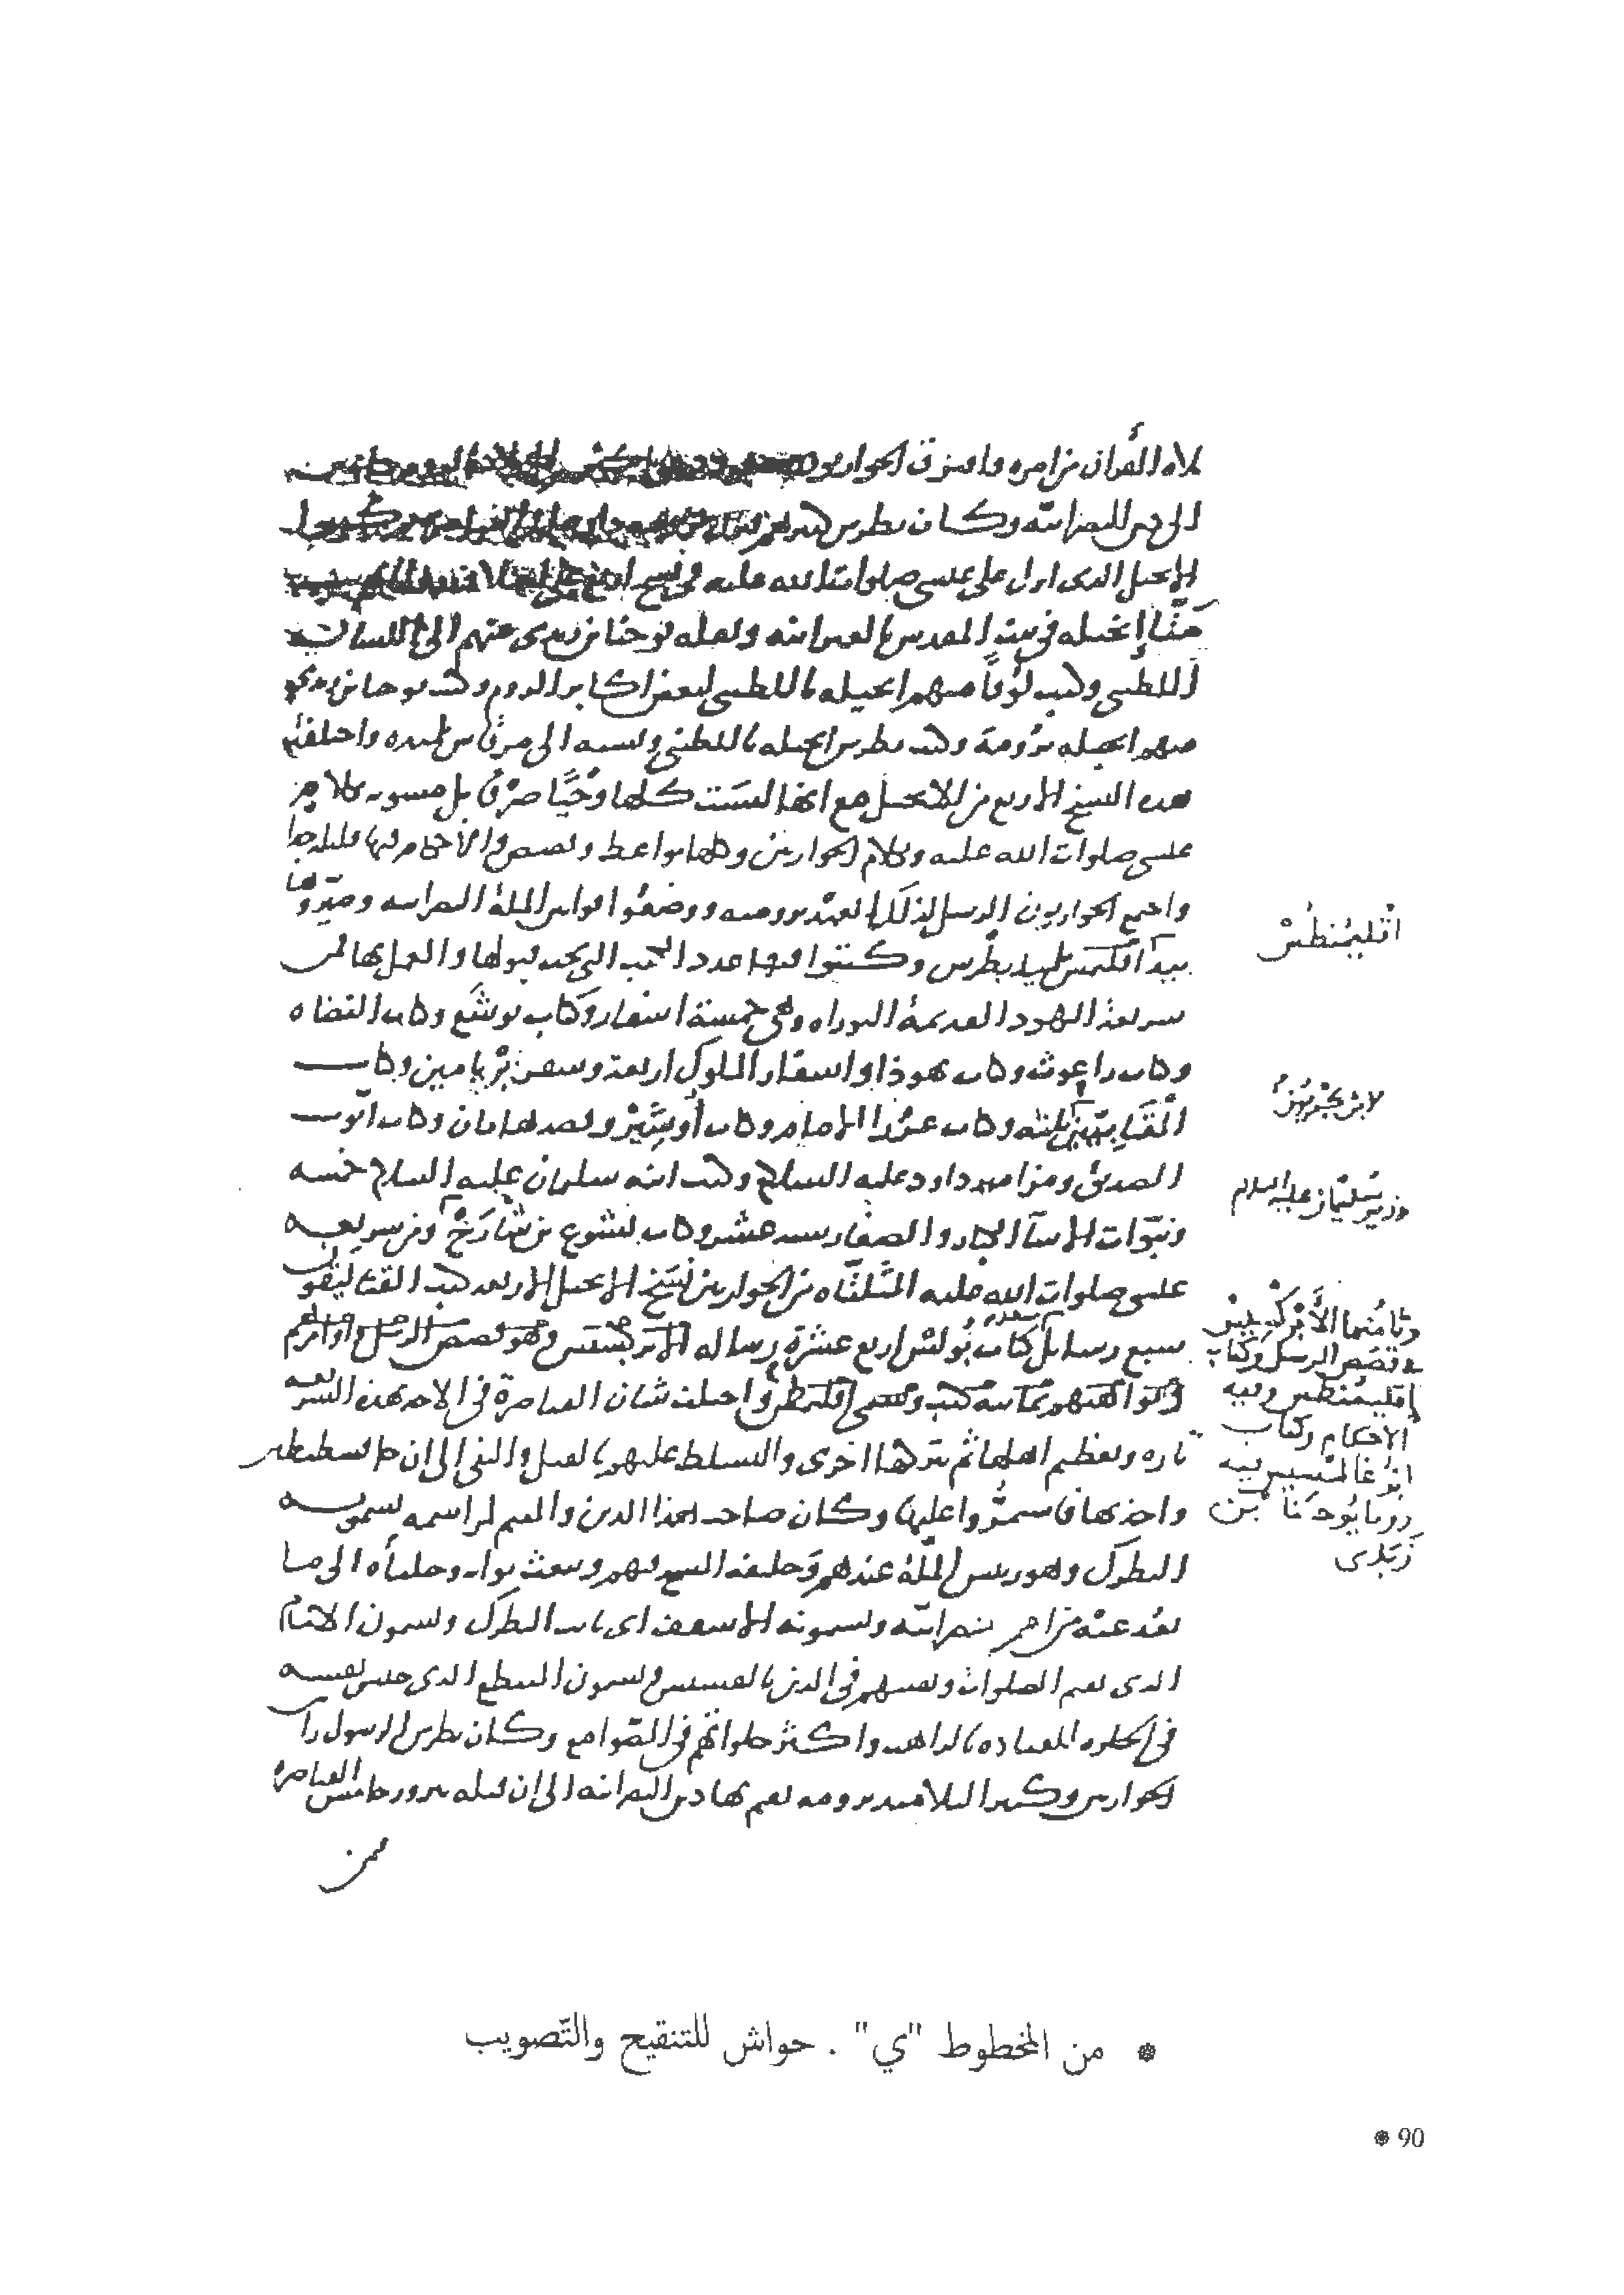 تلاه القرآن من امره وافترق الحواريون
الى دين النصرانية وكان بطرس كبيرهم
الانجيل الذى انزل على عيسى صلوات الله عليه فى نسخ اربع على
مَتَّا إنجيله فى بيت المقدس بالعبرانية ونقله يوحنا بن زبدى منهم الى اللسان
اللطينى وكتب لُوقا منهم انجيله باللطينى لبعض اكابر الروم وكتب يوحنا بن زبدى
منهم انجيله برُومة وكتب بطرس انجيله باللطينى ونسبه الى مرقاس تلميذه واختلفت
هذه النسخ الاربع من الانجيل مع انها ليست كلها وَحْيًا صِرْفًا بل مشوبة بكلام
عيسى صلوات الله عليه وبكلام الحواريين وكلها مواعظ وقصص والأحكام فيها قليلة جدا
واجتمع الحواريون الرسل لذلك العهد برومه ووضعُوا قوانين الملة النصرانيه وصيّروها
بيد اقليمنطس تلميذ بطرس وكتبوا فيها عدد الكتب التى يجب قبولها والعمل بها فمن
شريعة اليهود القديمة التوراه وهى خمسة اسفار وكتاب يوشَع وكتاب القضاه
وكتاب راعوث وكتاب يهوذا واسفار الملوك اربعة وسفر بنيامين وكتاب
المقابيين ثلثه وكتاب عزرا الامام وكتاب أوشير وقصه هامان وكتاب ايّوب
الصديق ومزامير داود عليه السلام وكتب ابنه سليمان عليه السلام خمسه
ونبوّات الانبيآ الكبار والصغار سته عشر وكتاب يشوع بن شارخ ومن شريعه
عيسى صلوات الله عليه المتلقّاه من الحواريين نسخ الانجيل الاربعه كتب القتاليقون
سبع رسائل كتاب بُولس اربع عشرة رساله
واختلف شان القياصرة فى الاخذ بهذه الشريعه
تاره وتعظيم اهلها ثم تركها اخرى والتسلط عليهم بالقتل والنفى الى ان جا قسطنطين
واخذ بها فاستمرُّوا عليها وكان صاحب هذا الدين والمقيم لمراسمه يسمونه
البطرك وهو رييس الملّة عندهم وَخليفة المسيح فيهم ويبعث نوابه وخلفاءه الى ما
بعُد عنه من امم النصرانيّه ويسمونه الاسقف اى نايب البطرك ويسمون الامام
الذى يقيم الصلوات ويفتيهم فى الدين بالقسيس ويسمون المنقطع الذى حبس نفسه
فى الخلوه للعباده بالراهب واكثر خلواتهم فى الصّوامع وكان بطرس الرسول راس
الحواريين وكبير التلاميذ برومه يقيم بها دين النصرانيه الى ان قتله نيرون خامس القياصرة
اقليمُنطس
وزير سُليمان عليه السلام
وثامنُها الأَبْركْسِيس
فى قصَص الرسل وكتاب
إقليمُنطس وفيه
الأحكام وكتاب
ابُوغالمْسيس فيه
رويا يُوحَنا بن
زَبَدى
من
❋ من المخطوط "ي" . حواش للتنقيح والتّصويب
❋ 90